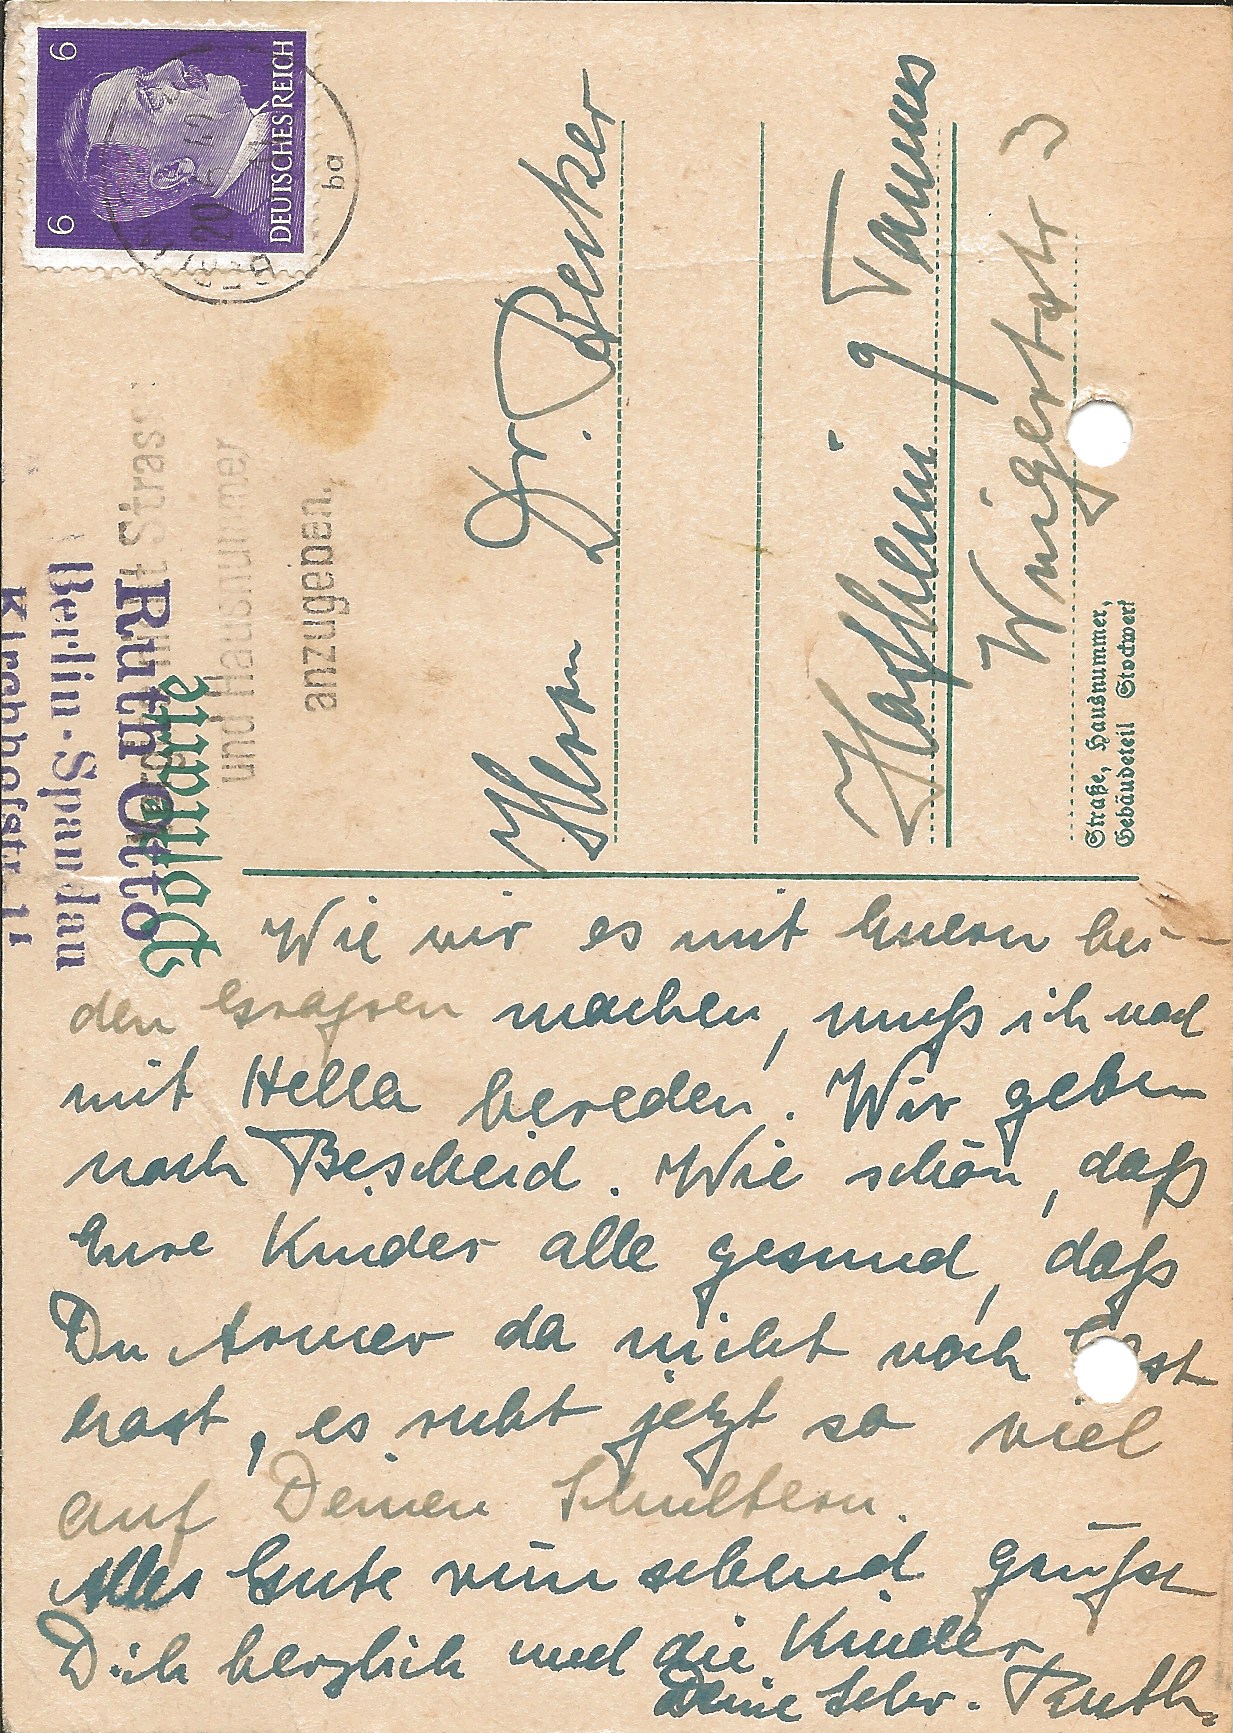 6 6
DEUTSCHES REICH
20
ba
Strass
und Hausnummer
anzugeben.
Ruth Otto
Berlin-Spandau
Kirchhofstr. 1
Postkarte
Herrn Dr. Becker
Hofheim / Taunus
Straße, Hausnummer,
Gebäudeteil Stockwerk
Wie wir es mit Euern bei-
den machen, muß ich noch
mit Hella bereden. Wir geben
noch Bescheid. Wie schön, daß
Eure Kinder alle gesund, daß
Du Armer da nicht noch
hast, es ruht jetzt so viel
auf Deinen Schultern.
Alles Gute wünschend grüßt
Dich herzlich und die Kinder
Deine Schw. Ruth.